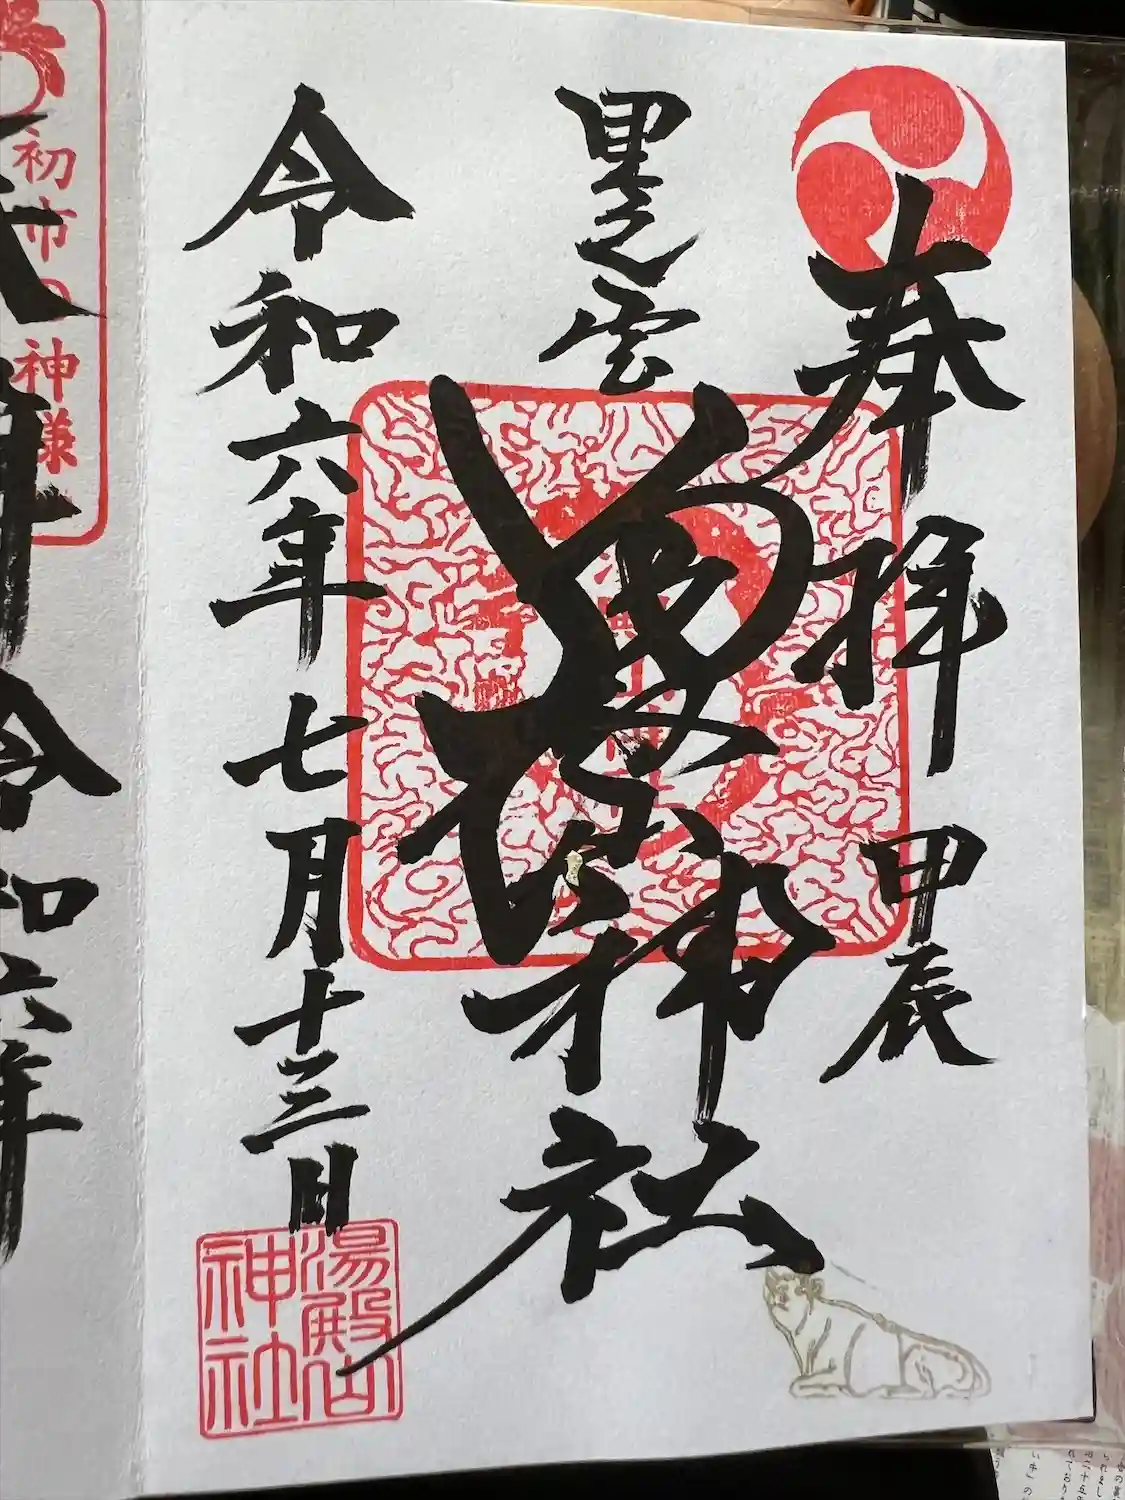 奉拝 甲辰
里之宮
湯殿山神社
令和六年七月十三日
湯殿山
神社
初市の神様
令和六年